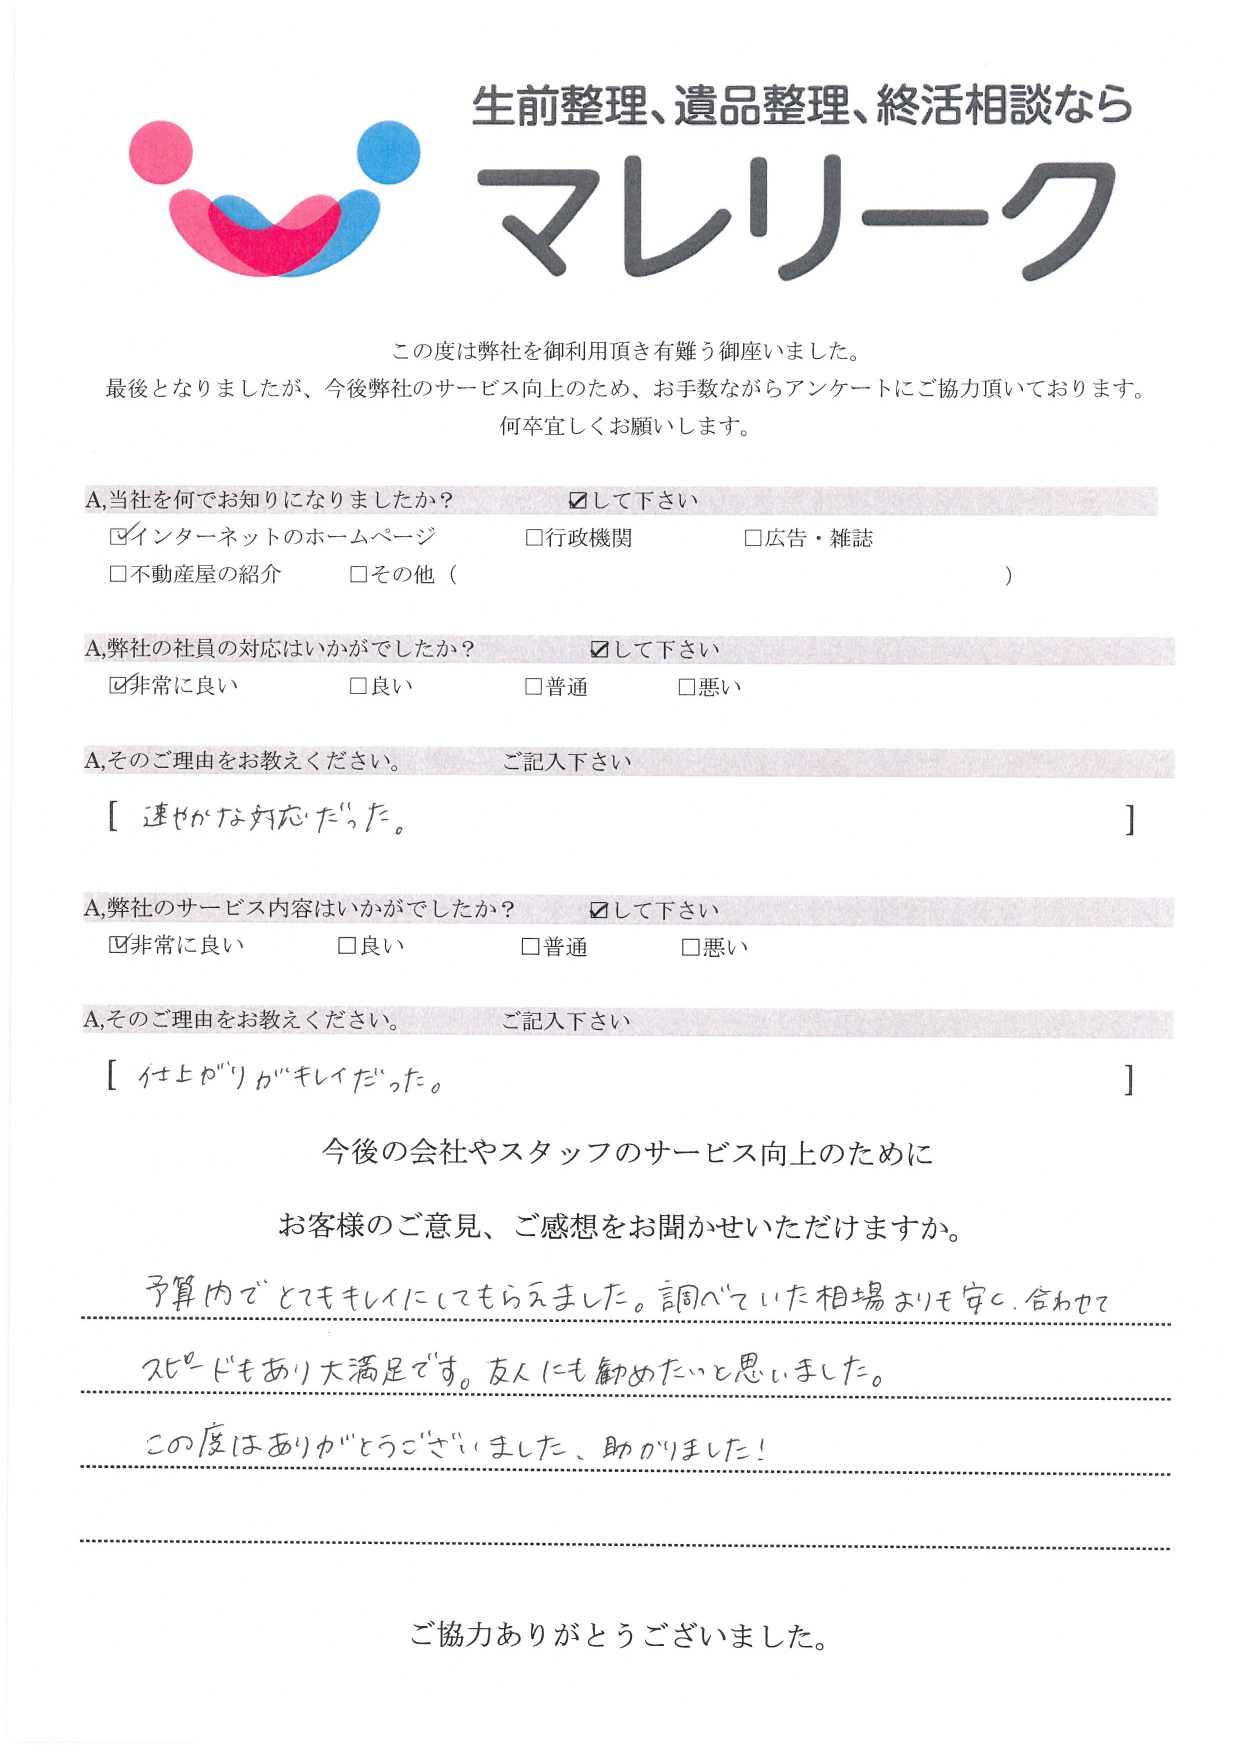 生前整理、遺品整理、終活相談なら
マレリーク
この度は弊社を御利用頂き有難う御座いました。
最後となりましたが、今後弊社のサービス向上のため、お手数ながらアンケートにご協力頂いております。
何卒宜しくお願いします。
A,当社を何でお知りになりましたか？ ☑して下さい
☑インターネットのホームページ □行政機関 □広告・雑誌
□不動産屋の紹介 □その他（ ）
A,弊社の社員の対応はいかがでしたか？ ☑して下さい
☑非常に良い □良い □普通 □悪い
A,そのご理由をお教えください。 ご記入下さい
[ 速やかな対応だった。 ]
A,弊社のサービス内容はいかがでしたか？ ☑して下さい
☑非常に良い □良い □普通 □悪い
A,そのご理由をお教えください。 ご記入下さい
[ 仕上がりがキレイだった。 ]
今後の会社やスタッフのサービス向上のために
お客様のご意見、ご感想をお聞かせいただけますか。
予算内でとてもキレイにしてもらえました。調べていた相場よりも安く、合わせて
スピードもあり大満足です。友人にも勧めたいと思いました。
この度はありがとうございました、助かりました！
ご協力ありがとうございました。